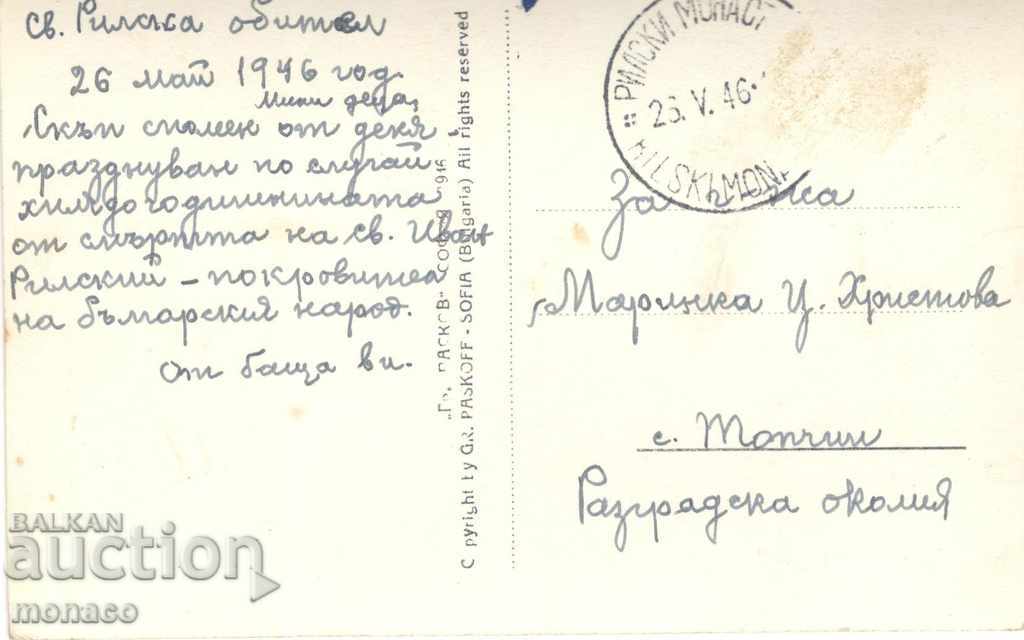 Св. Рилска обител
26 май 1946 год.
Мили деца,
Скъп спомен от деня -
празднуван по случай
хилядогодишнината
от смъртта на св. Иван
Рилский - покровител
на българския народ.
От баща ви.
"Гр. ПАСКОВ" СОФИЯ 1946
C pyright by GR. PASKOFF - SOFIA (Bulgaria) All rights reserved
РИЛСКИ МОНАСТ
26.V.46
RILSKI MON.
За г-жа
Марийка Ц. Христова
с. Топчии
Разградска околия
BALKAN
auction
monaco